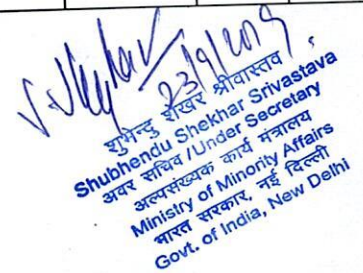 23/9/2019
शुभेन्दु शेखर श्रीवास्तव
Shubhendu Shekhar Srivastava
अवर सचिव / Under Secretary
अल्पसंख्यक कार्य मंत्रालय
Ministry of Minority Affairs
भारत सरकार, नई दिल्ली
Govt. of India, New Delhi